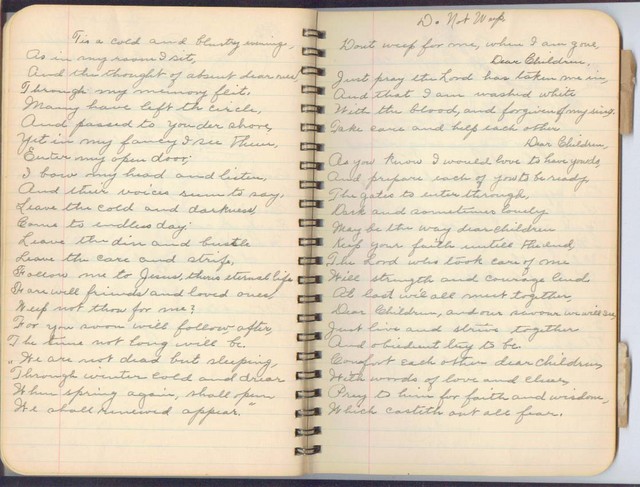 Tis a cold and blustry evening,
As in my room I sit,
And the thought of absent dear ones,
Through my memory flit.
Many have left the circle,
And passed to yonder shore,
Yet in my fancy I see them,
Enter my open door;
I bow my head and listen,
And their voices seem to say,
Leave the cold and darkness,
Come to endless day.
Leave the din and bustle
Leave the care and strife,
Follow me to Jesus, thru eternal life
Here will friends and loved ones
Weep not thou for me;
For you soon will follow after,
The time not long will be.
"We are not dead but sleeping,
Through winter cold and drear
When spring again, shall open
We shall renewed appear."
Do Not Weep
Dont weep for me, when I am gone,
Dear Children,
Just pray the Lord has taken me in,
And that I am washed white
With the blood, and forgiven of my sins.
Take care and help each other
Dear Children,
As you know I would love to have you do,
And prepare each of you to be ready
The gates to enter through,
Dark and sometimes lonely
May be the way dear children
Keep your faith untill the end,
The Lord who took care of me
Will strength and courage lend.
At last will all meet together,
Dear Children, and our saviour we will see,
Just live and strive together
And obedient try to be
Comfort each other dear children,
With words of love and cheer,
Pray to him for faith and wisdom,
Which casteth out all fear.